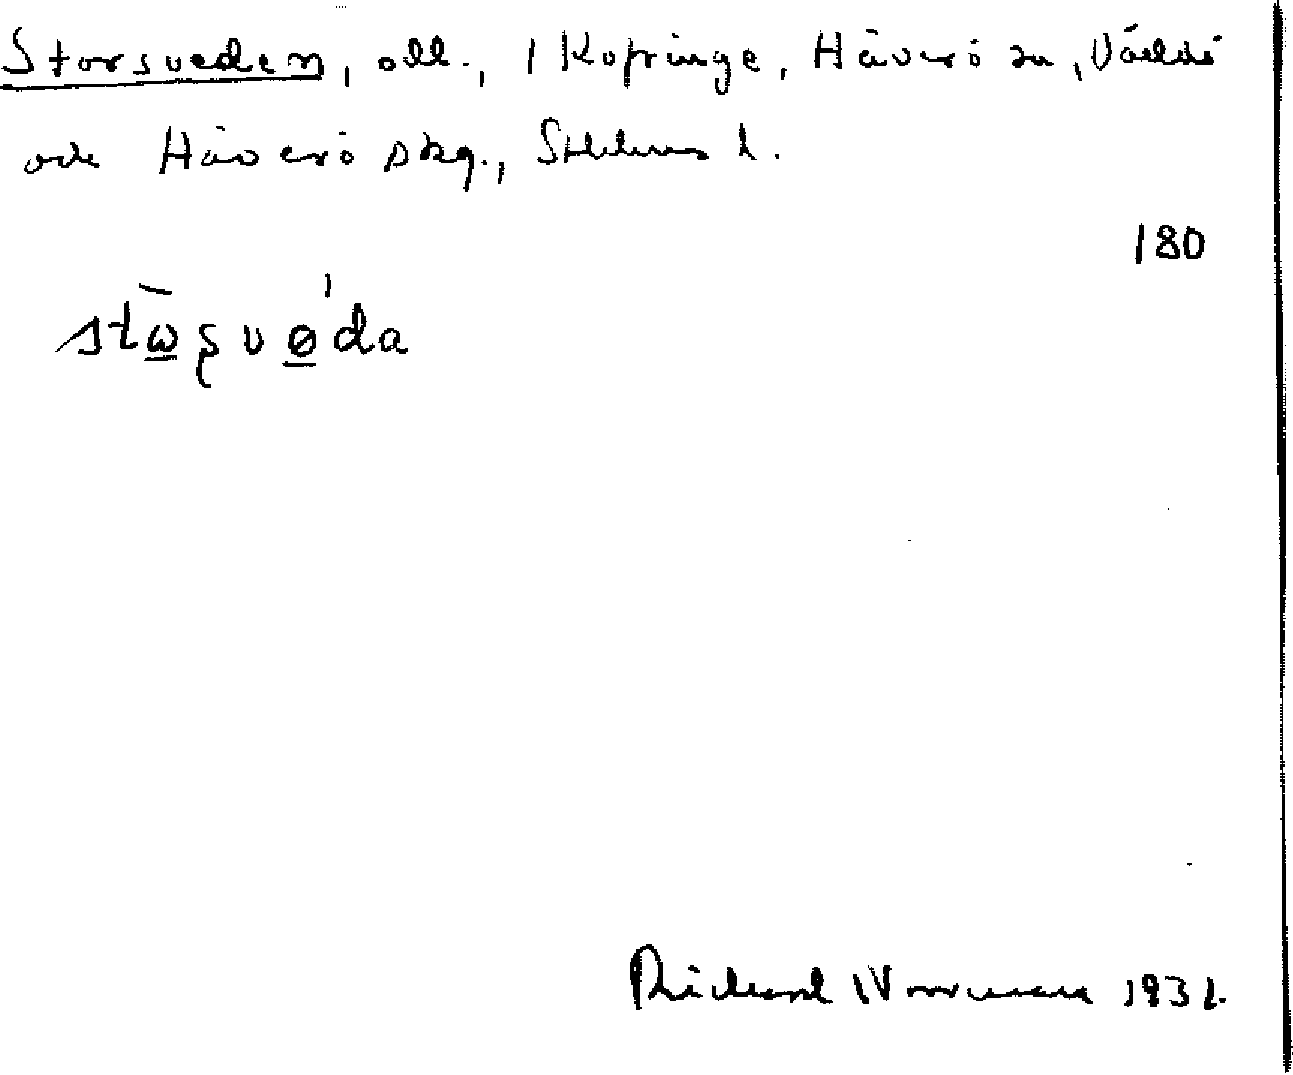 Storsveden, åll., 1 Kopringe, Häverö sn, Väddö
och Häverö skg., Sthlms l.
180
stω̲ʂvø̲'da
Rickard Norrman 1932.